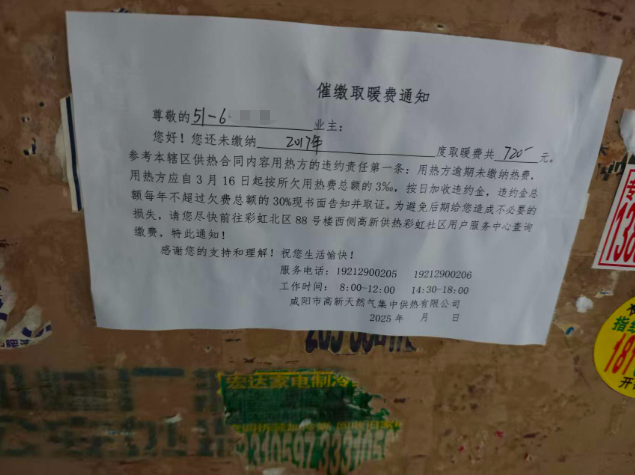 催缴取暖费通知
尊敬的51-6 业主：
您好！您还未缴纳 2017年 度取暖费共 720 元。
参考本辖区供热合同内容用热方的违约责任第一条：用热方逾期未缴纳热费，
用热方应自3月16日起按所欠用热费总额的3‰，按日加收违约金，违约金总
额每年不超过欠费总额的30%现书面告知并取证。为避免后期给您造成不必要的
损失，请您尽快前往彩虹北区88号楼西侧高新供热彩虹社区用户服务中心查询
缴费，特此通知！
感谢您的支持和理解！祝您生活愉快！
服务电话：19212900205 19212900206
工作时间： 8:00-12:00 14:30-18:00
咸阳市高新天然气集中供热有限公司
2025年 月 日
宏达家电制冷